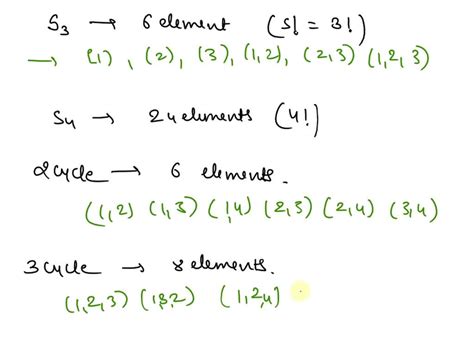 S3 → 6 element (S! = 3!)
→ (1), (2), (3), (1,2), (2,3) (1,2,3)
S4 → 24 elements (4!)
2 cycle → 6 elements.
(1,2) (1,3) (1,4) (2,3) (2,4) (3,4)
3 cycle → 8 elements.
(1,2,3) (1,3,2) (1,2,4)